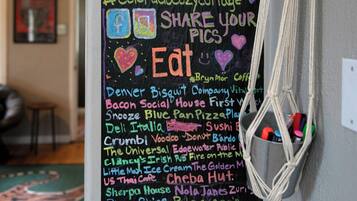 #coloradocozycottage
SHARE YOUR
PICS
Eat
Brynmor Coffee
Denver Biscuit Company Vital
Bacon Social House First
Snooze Blue Pan Pizza
Deli Italia Sushi
Crumbl Voodoo Donut
The Universal Edgewater Public
Clancy's Irish Pub Fire on the M
Little Man Ice Cream The Golden
US Thai Cafe Cheba Hut.
Sherpa House Nola Janes